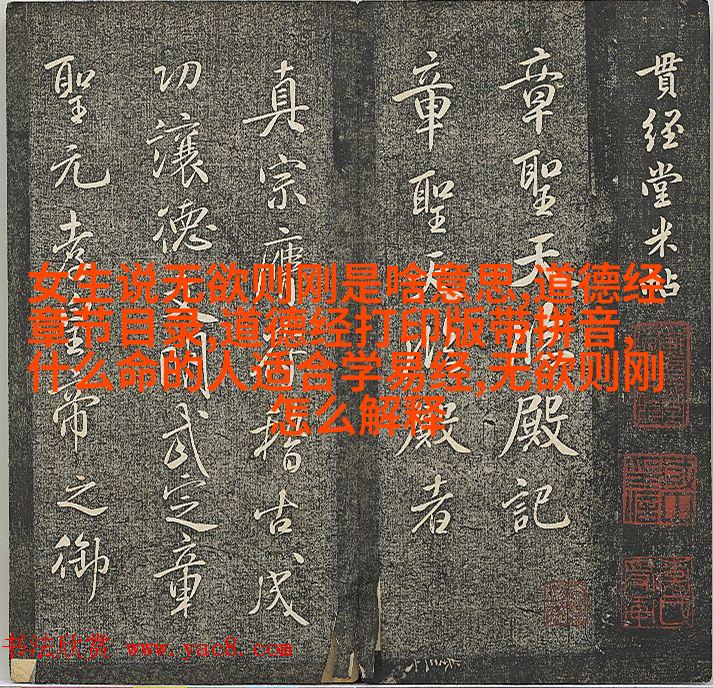 貫經堂米帖
章聖天臨殿記
章聖天臨殿者
真宗膺符稽古成
功讓德文明武定章
聖元孝皇帝之御
女生说无欲则刚是啥意思,道德经
章节目录,道德经打印版带拼音,
什么命的人适合学易经,无欲则刚
怎么解释
书法欣赏 www.yac8.com